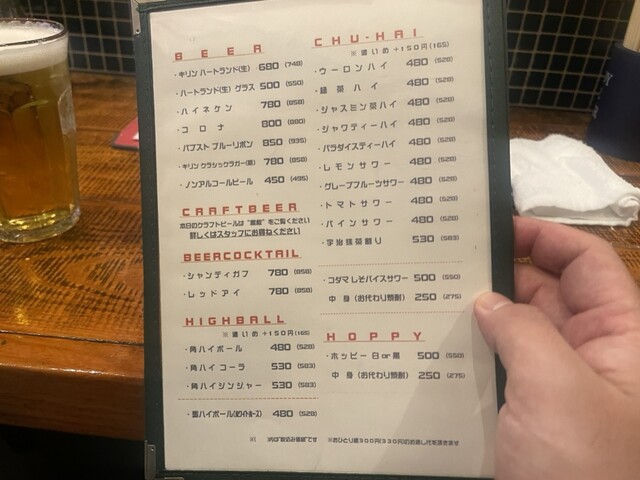 BEER
・キリン ハートランド(生) 680 (748)
・ハートランド(生) グラス 500 (550)
・ハイネケン 780 (858)
・コロナ 800 (880)
・パブスト ブルーリボン 850 (935)
・キリン クラシックラガー(瓶) 780 (858)
・ノンアルコールビール 450 (495)
CRAFTBEER
本日のクラフトビールは“黒板”をご覧ください
詳しくはスタッフにお尋ねください
BEERCOCKTAIL
・シャンディガフ 780 (858)
・レッドアイ 780 (858)
HIGHBALL
※濃いめ +150円(165)
・角ハイボール 480 (528)
・角ハイコーラ 530 (583)
・角ハイジンジャー 530 (583)
ハイボール 480 (528)
CHU-HAI
※濃いめ +150円(165)
・ウーロンハイ 480 (528)
・緑茶ハイ 480 (528)
・ジャスミン茶ハイ 480 (528)
・ジャワティーハイ 480 (528)
・パラダイスティーハイ 480 (528)
・レモンサワー 480 (528)
・グレープフルーツサワー 480 (528)
・トマトサワー 480 (528)
・パインサワー 480 (528)
・宇治抹茶割り 530 (583)
・コダマしそバイスサワー 500 (550)
中身(お代わり焼酎) 250 (275)
HOPPY
・ホッピー 白or黒 500 (550)
中身(お代わり焼酎) 250 (275)
※おひとり様300円(330円)のお通し代を頂きます